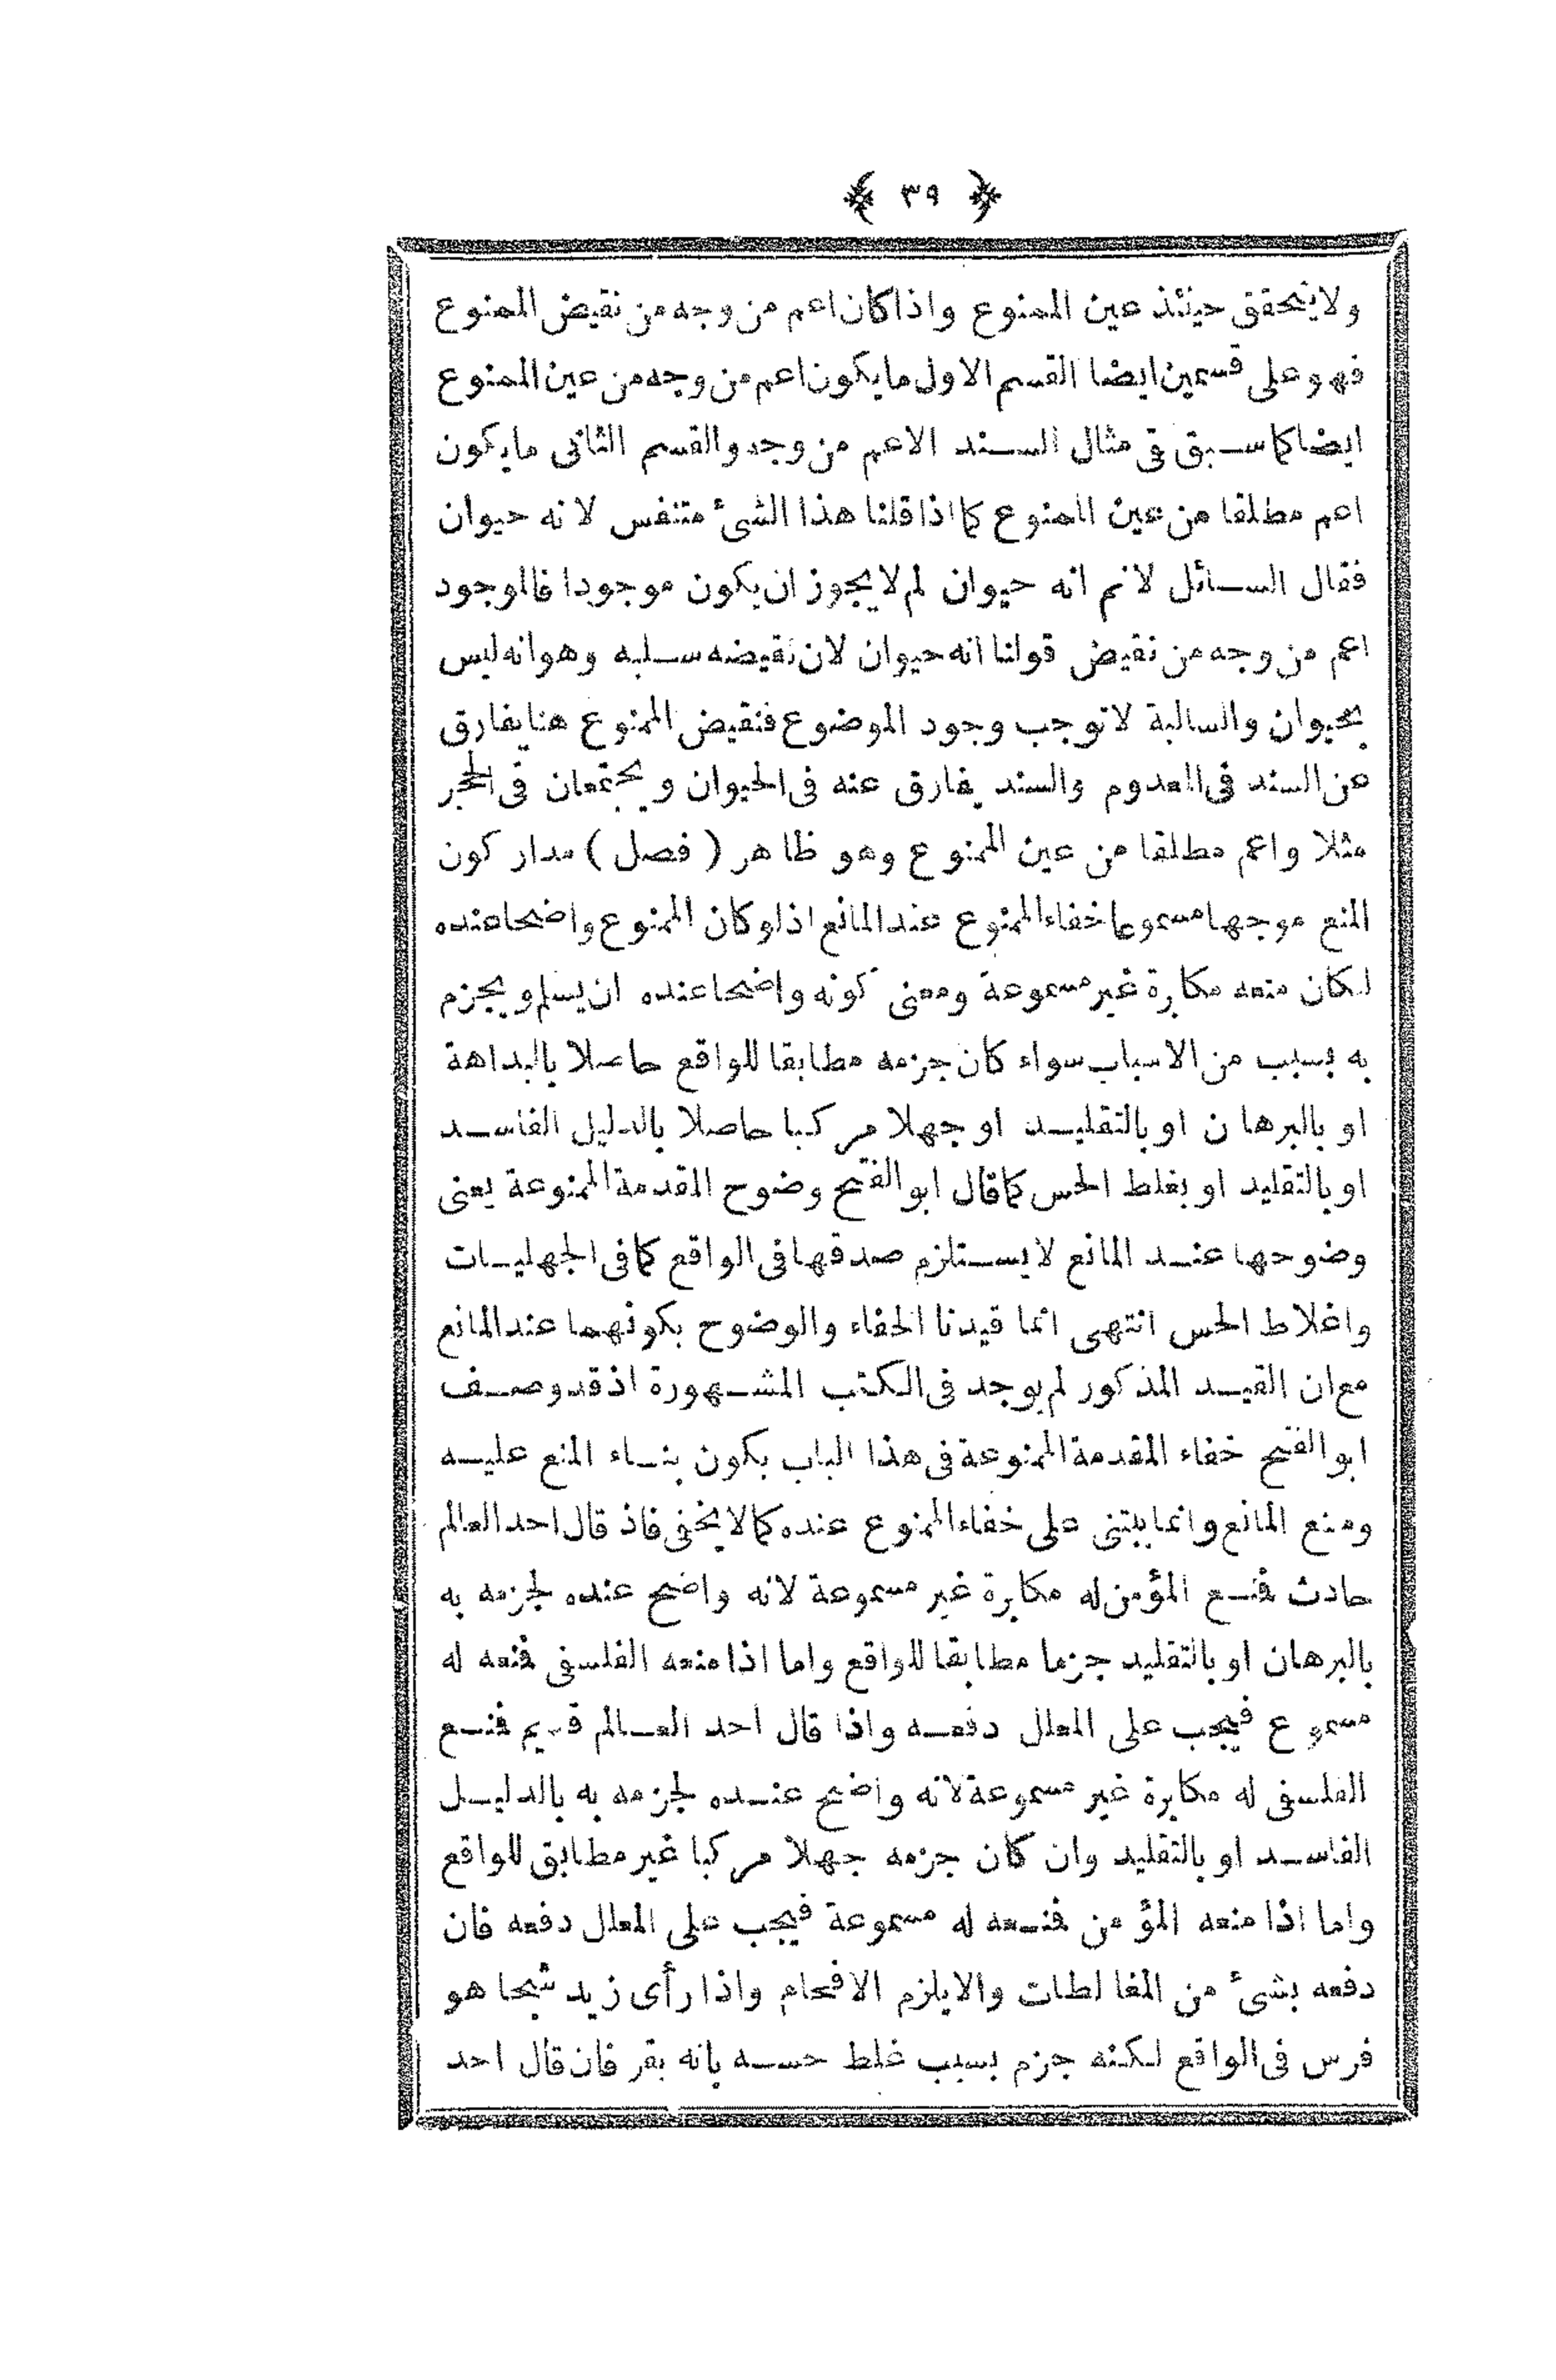 ﴿ ٣٩ ﴾
ولا يتحقق حينئذ عين الممنوع واذا كان اعم من وجه من نقيض الممنوع
فهو على قسمين ايضا القسم الاول ما يكون اعم من وجه من عين الممنوع
ايضا كما سبق فى مثال السند الاعم من وجه والقسم الثانى ما يكون
اعم مطلقا من عين الممنوع كما اذا قلنا هذا الشئ متنفس لانه حيوان
فقال السائل لا نم انه حيوان لم لا يجوز ان يكون موجودا فالوجود
اعم من وجه من نقيض قولنا انه حيوان لان نقيضه سلبه وهو انه ليس
بحيوان والسالبة لا توجب وجود الموضوع فنقيض الممنوع هنا يفارق
عن السند فى المعدوم والسند يفارق عنه فى الحيوان ويجتمعان فى الحجر
مثلا واعم مطلقا من عين الممنوع وهو ظاهر ( فصل ) مدار كون
المنع موجها مسموعا خفاء الممنوع عند المانع اذ لو كان الممنوع واضحا عنده
لكان منعه مكابرة غير مسموعة ومعنى كونه واضحا عنده ان يسلم ويجزم
به بسبب من الاسباب سواء كان جزمه مطابقا للواقع حاصلا بالبداهة
او بالبرهان او بالتقليد او جهلا مركبا حاصلا بالدليل الفاسد
او بالتقليد او بغلط الحس كما قال ابو الفتح وضوح المقدمة الممنوعة يعنى
وضوحها عند المانع لا يستلزم صدقها فى الواقع كما فى الجهليات
واغلاط الحس انتهى انما قيدنا الخفاء والوضوح بكونهما عند المانع
مع ان القيد المذكور لم يوجد فى الكتب المشهورة اذ قد وصف
ابو الفتح خفاء المقدمة الممنوعة فى هذا الباب بكون بناء المنع عليه
ومنع المانع وانما يبتنى على خفاء الممنوع عنده كما لا يخفى فاذ قال احد العالم
حادث فمنع المؤمن له مكابرة غير مسموعة لانه واضح عنده لجزمه به
بالبرهان او بالتقليد جزما مطابقا للواقع واما اذا منعه الفلسفى فمنعه له
مسموع فيجب على المعلل دفعه واذا قال احد العالم قديم فمنع
الفلسفى له مكابرة غير مسموعة لانه واضح عنده لجزمه به بالدليل
الفاسد او بالتقليد وان كان جزمه جهلا مركبا غير مطابق للواقع
واما اذا منعه المؤمن فمنعه له مسموعة فيجب على المعلل دفعه فان
دفعه بشئ من المغالطات والا يلزم الافحام واذا رأى زيد شبحا هو
فرس فى الواقع لكنه جزم بسبب غلط حسه بانه بقر فان قال احد